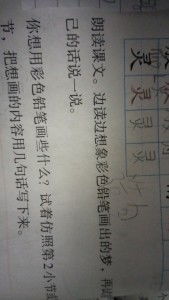 灵 灵 灵 灵
朗读课文。边读边想象彩色铅笔画出的梦，再
己的话说一说。
你想用彩色铅笔画些什么？试着仿照第2小节
节，把想画的内容用几句话写下来。